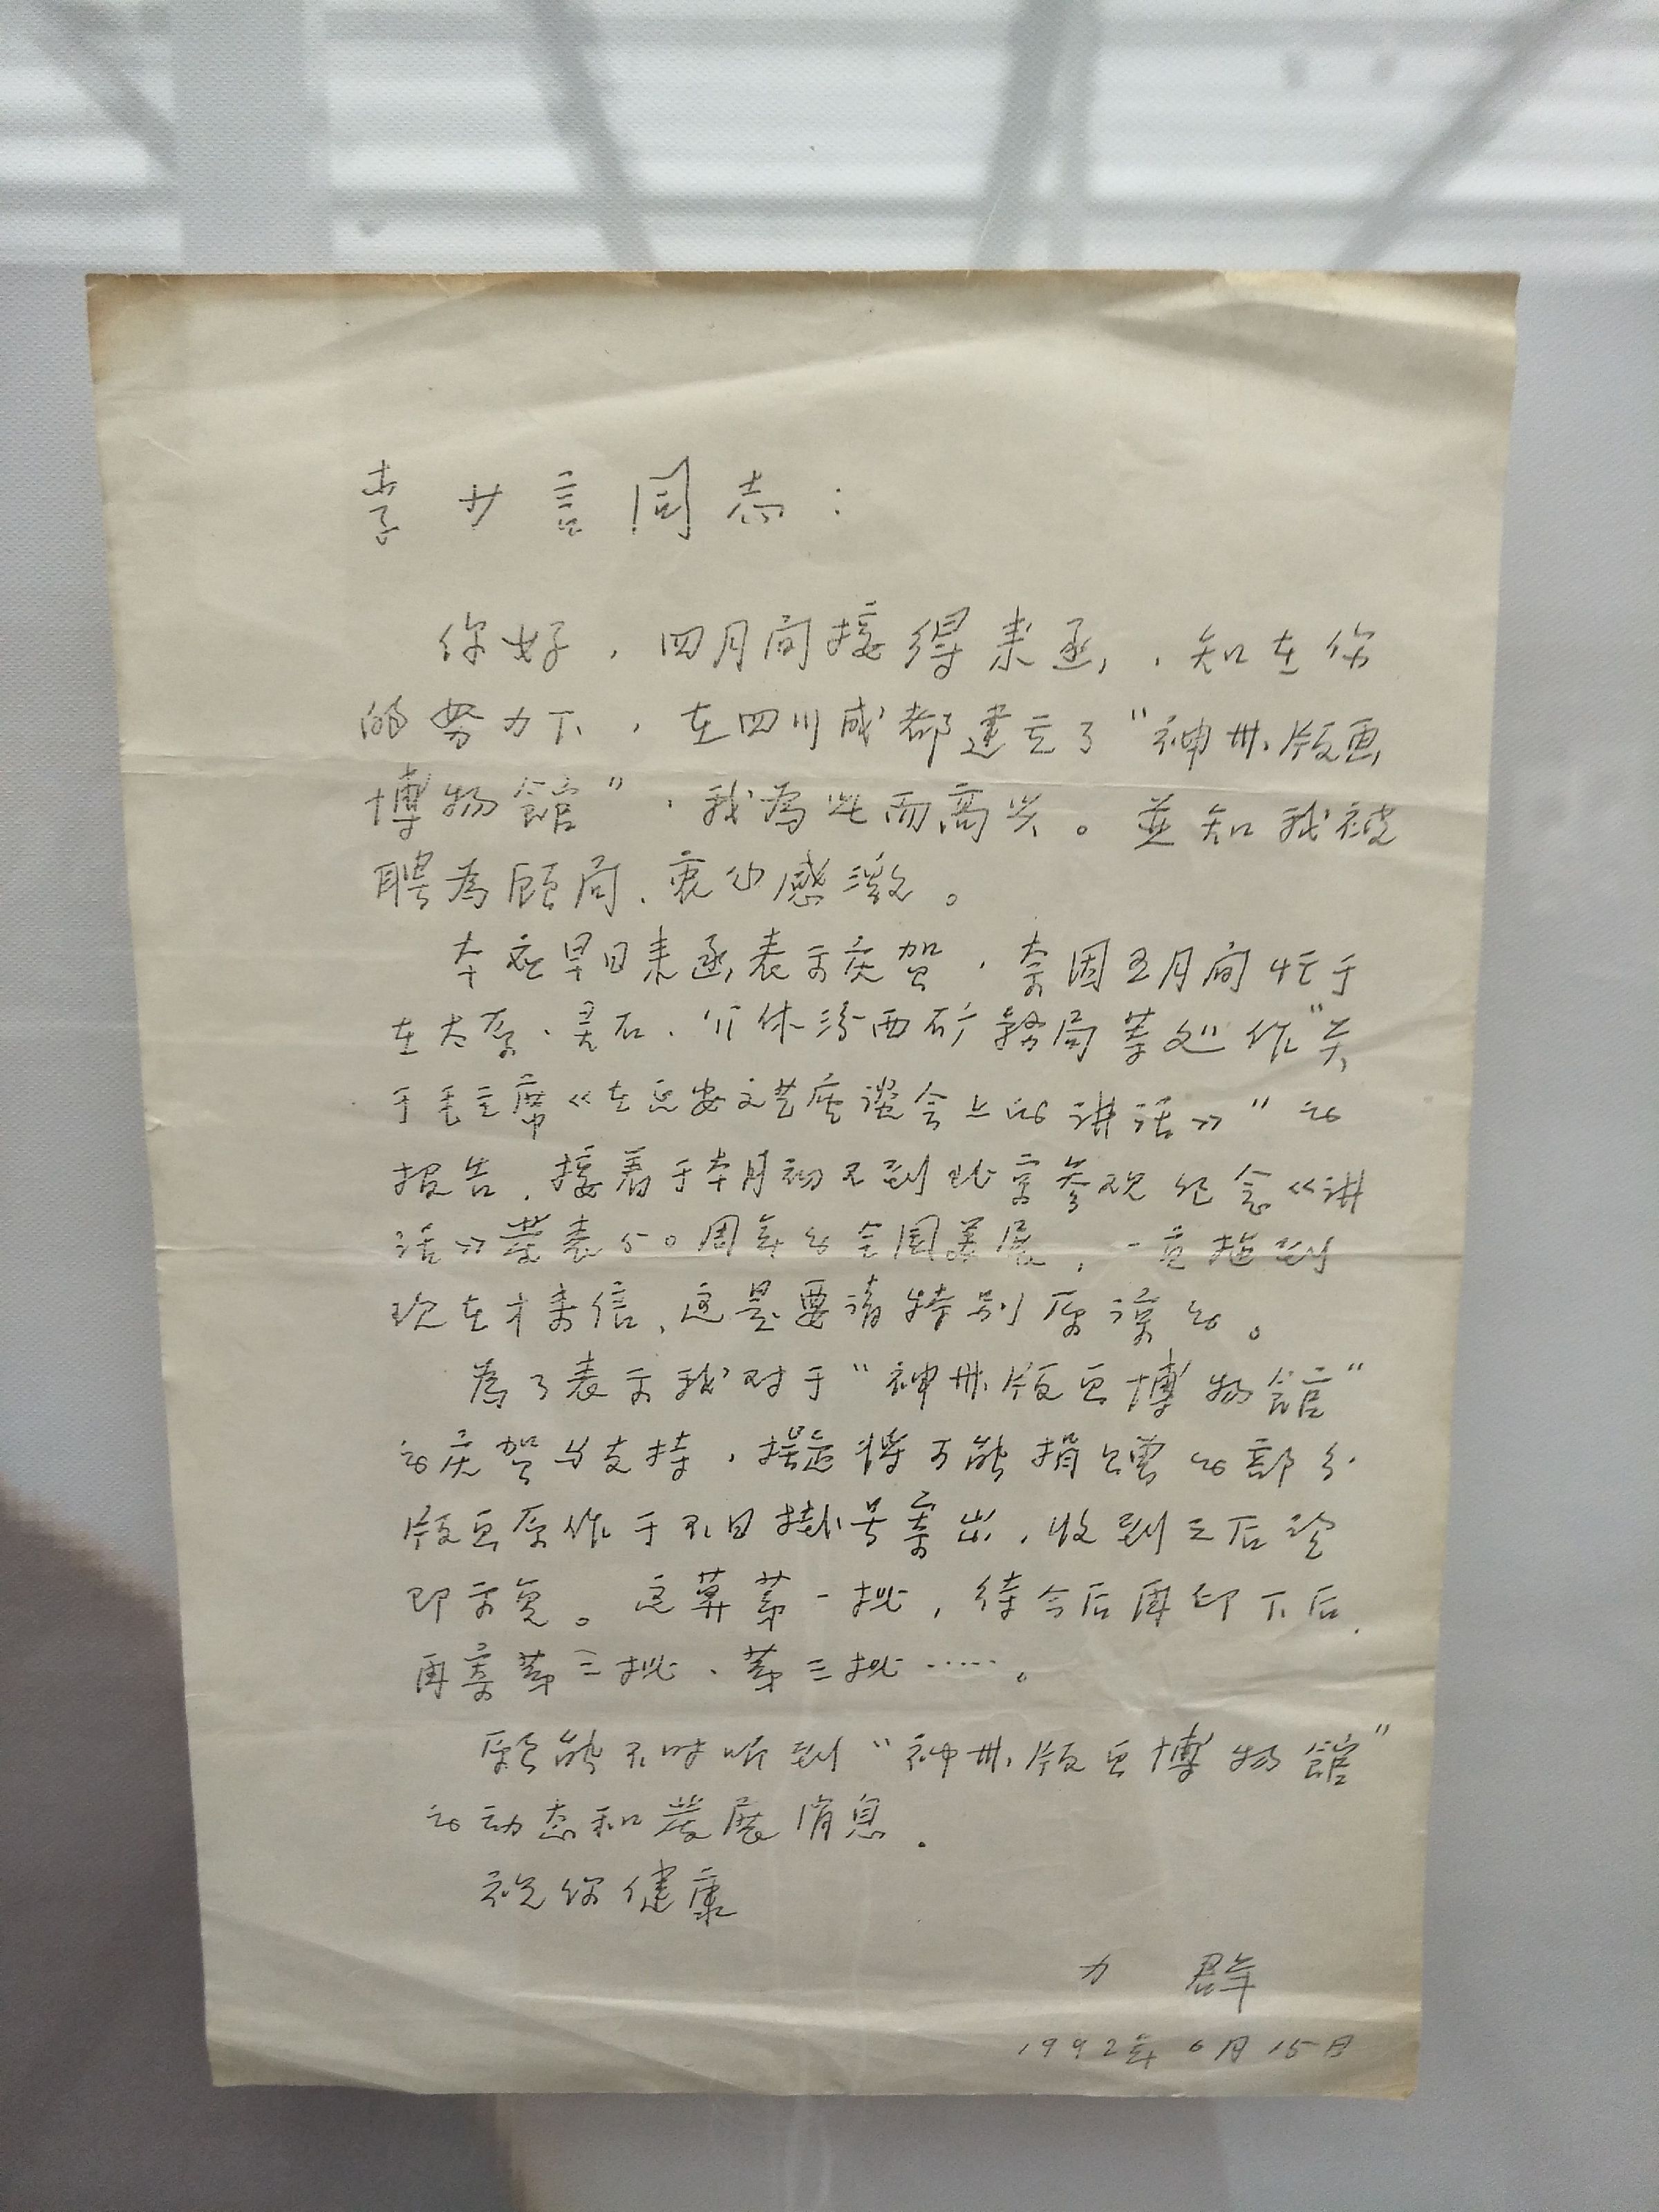 李少言同志：
你好，四月间接得来函，知在你
的努力下，在四川成都建立了“神州版画
博物館”，我為此而高兴。並知我被
聘為顾问、衷心感激。
本应早日来函表示庆贺，奈因五月间忙于
在太原、灵石、介休汾西矿務局等处作“关
于毛主席《在延安文艺座谈会上的讲话》”的
报告，接着于本月初又到北京参观纪念《讲
话》發表50周年的全国美展，一直拖到
现在才来信，这是要请特别原谅的。
為了表示我对于“神州版画博物館”
的庆贺与支持，拟将可能捐赠的部分
版画原作于不日掛号寄出，收到之后望
即示复。这算第一批，待今后再印下后，
再寄第二批、第三批……。
願能不时听到“神州版画博物館”
的动态和發展消息。
祝你健康
力 群
1992年6月15日